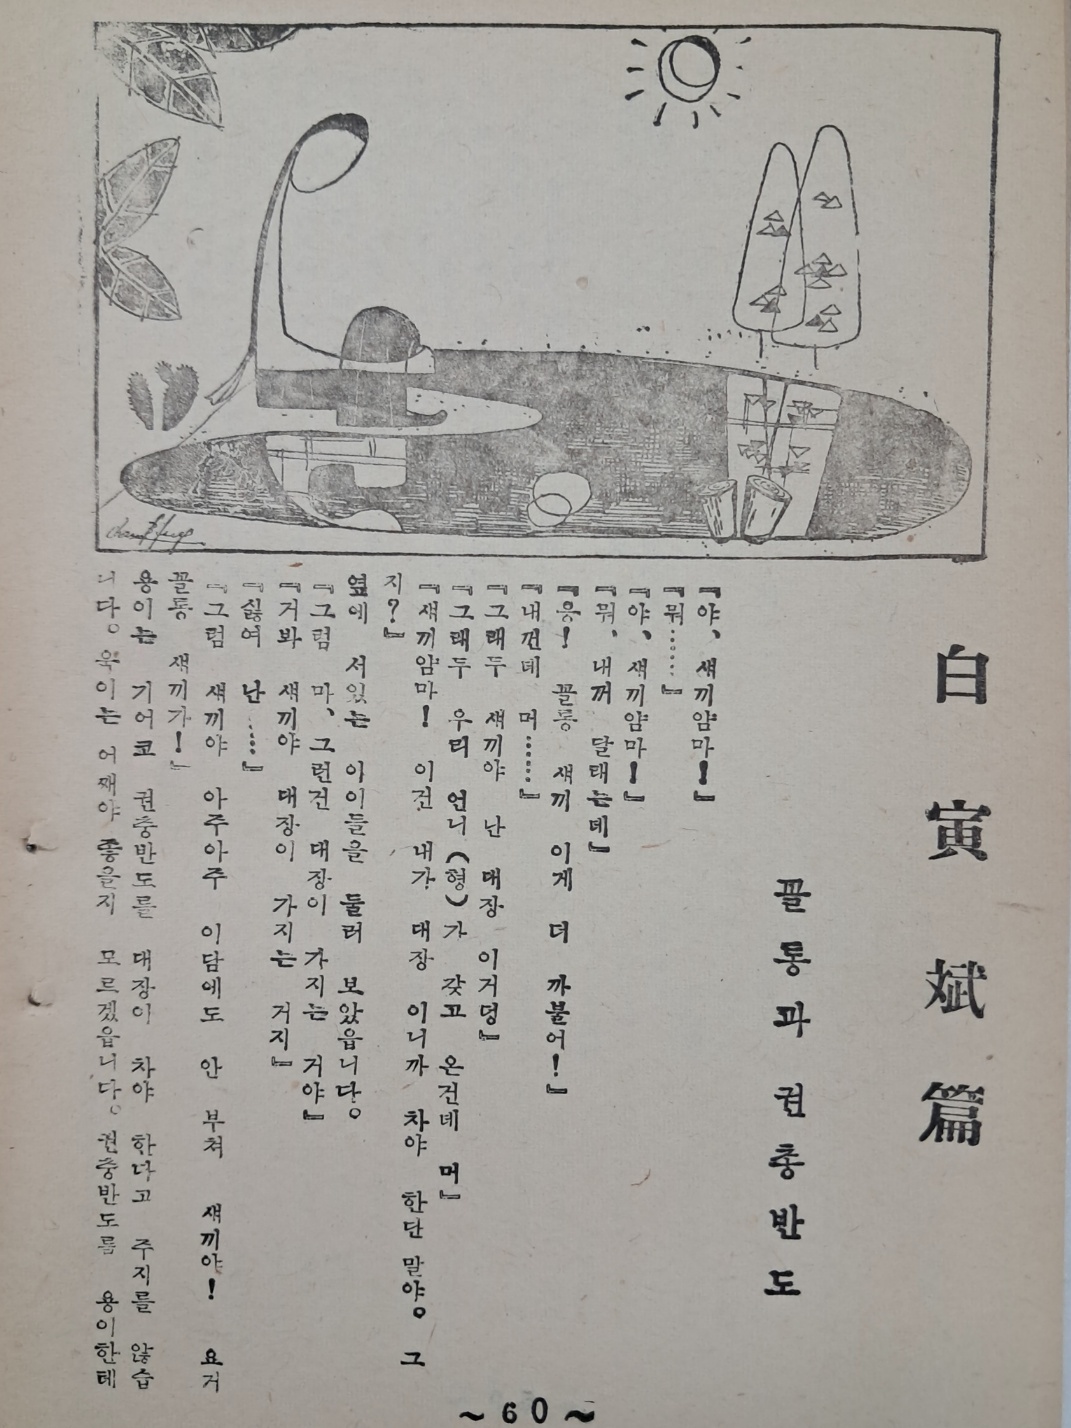 白寅斌篇
꼴통과 권총반도
『야, 새끼얌마!』
『뭐……』
『야, 새끼얌마!』
『뭐, 내꺼 달래는데』
『응! 꼴통 새끼 이게 더 까불어!』
『내껀데 머……』
『그래두 새끼야 난 대장 이거덩』
『그래두 우리 언니(형)가 갖고 온건데 머』
『새끼얌마! 이건 내가 대장 이니까 차야 한단 말야。 그
지?』
옆에 서있는 아이들을 둘러 보았읍니다。
『그럼 마、그런건 대장이 가지는 거야』
『거봐 새끼야 대장이 가지는 거지』
『싫여 난……』
『그럼 새끼야 아주아주 이담에도 안 부쳐 새끼야! 요거
꼴통 새끼가!』
용이는 기어코 권총반도를 대장이 차야 한다고 주지를 않습
니다。 욱이는 어째야 좋을지 모르겠읍니다。 권총반도를 용이한테
~60~